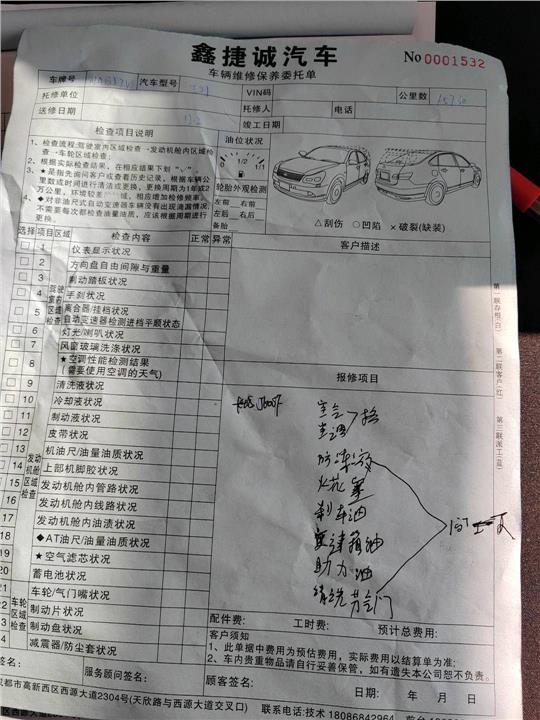 鑫捷诚汽车
车辆维修保养委托单
No 0001532
车牌号 汽车型号 VIN码 公里数
托修单位 托修人 电话
送修日期 竣工日期
检查项目说明 油位状况
1、检查流程:驾驶室内区域检查→发动机舱内区域检查→车轮区域检查;
2、根据实际检查结果，在相应结果下划"√"
3、★是指先询问客户或查看历史记录，根据车辆公里数或时间进行清洁或更换，更换周期为1年或2万公里，环境较差 域，相应增加检修频率。
4、◆对非油尺式自动变速器车辆没有出现泄漏情况，不需要每次都检查油量油质，应该根据周期进行更换。
0 1/2 1/1
轮胎外观检测
左前 右前
左后 右后
备胎
△刮伤 ○凹陷 ×破裂(缺装)
选择 项目区域 检查内容 正常 异常
客户描述
驾驶室内区域检查
1 仪表显示状况
2 方向盘自由间隙与重量
3 制动踏板状况
4 手刹状况
5 离合器/挂档状况 自动变速器检测进档平顺状态
6 灯光/喇叭状况
7 风窗玻璃洗涤状况
8 ★空调性能检测结果(需要使用空调的天气)
发动机舱区域检查
9 清洗液状况
10 冷却液状况
11 制动液状况
12 皮带状况
13 机油尺/油量油质状况
14 上部机脚胶状况
15 发动机舱内管路状况
16 发动机舱内线路状况
17 发动机舱内油渍状况
18 ◆AT油尺/油量油质状况
19 ★空气滤芯状况
20 蓄电池状况
车轮区域检查
21 车轮/气门嘴状况
22 制动片状况
23 制动盘状况
24 减震器/防尘套状况
报修项目
防冻液
火花塞
刹车油
变速箱油
助力油
清洗节气门
第一联存根(白) 第二联客户(红) 第三联派工(蓝)
配件费: 工时费: 预计总费用:
客户须知
1、此单据中费用为预估费用，实际费用以结算单为准;
2、车内贵重物品请自行妥善保管，如有遗失本公司恕不负责。
签名: 服务顾问签名: 顾客签名: 日期: 年 月 日
都市高新西区西源大道2304号(天欣路与西源大道交叉口) 联系电话:技术 18086842964